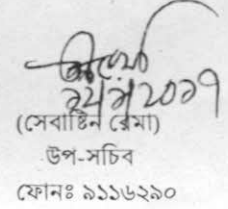 (সেবাষ্টিন রেমা)
উপ-সচিব
ফোনঃ ৯১১৬২৯০